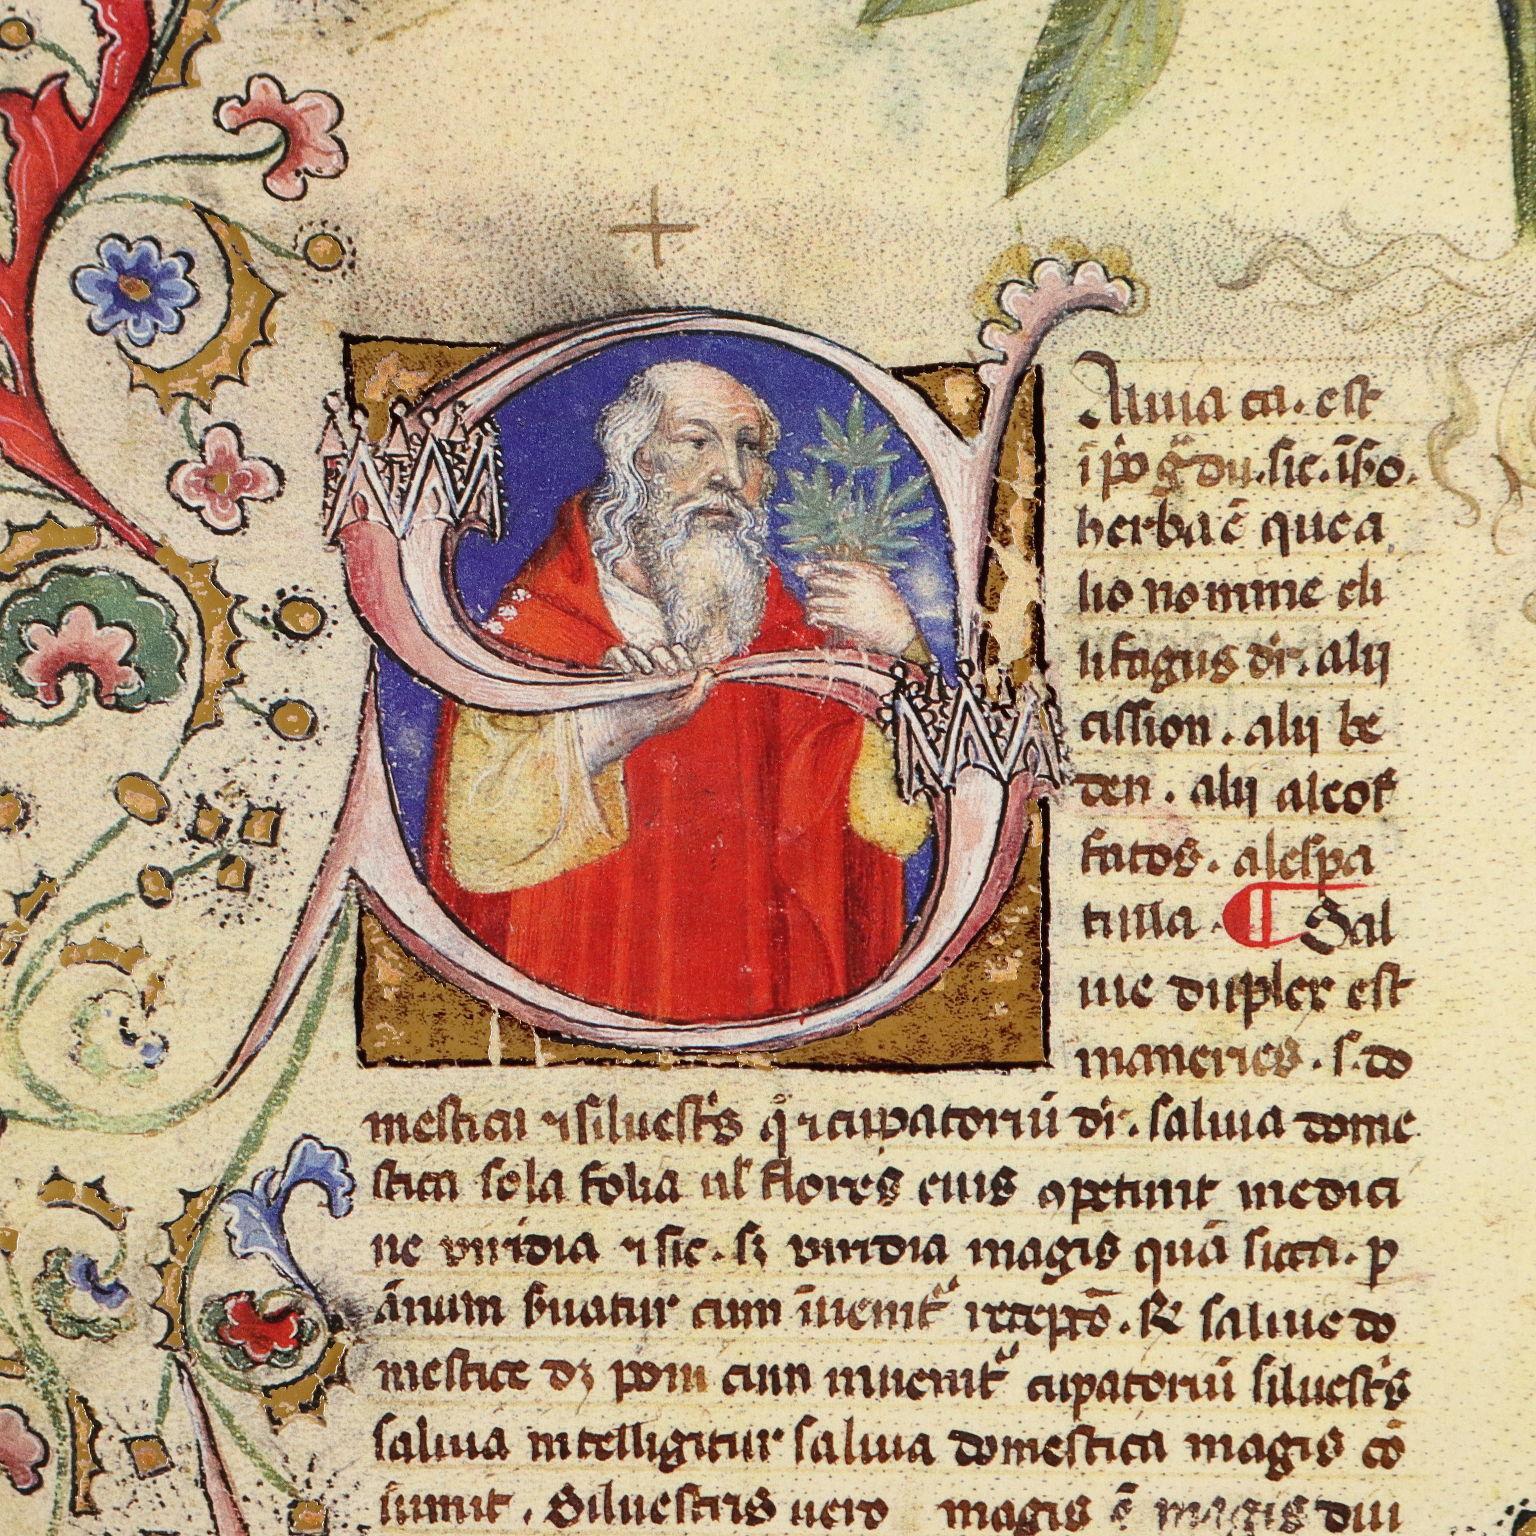 Aluia ca. est
i pͦ gͣdu. sic. i sͦo.
herba ē que a
lio nomine eli
lifagus dr̄. alij
cission. alij be
den. alij alcos
fatos. alespa
tulla. ¶ Sal
uie duplex est
maneries. s. do
mestica ⁊ siluestͥs q̊ ⁊ eupatoriū dr̄. saluia dome
stica sola folia ul̓ flores eius ꝯpetunt medici
ne viridia ⁊ sic. sꝫ viridia magis quā sicca. p
ānum ẜuatur cum īuenitͬ ī recepto. ℞ saluie do
mestice dꝫ poni cum inuenitͬ eupatoriū siluestͥs
saluia intelligitur saluia domestica magis cō
sumit. Siluestris uero magis ē magis diu